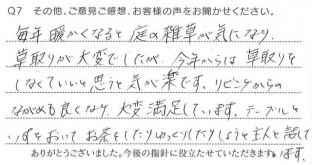 Q7 その他、ご意見ご感想、お客様の声をお聞かせください。
毎年暖かくなると庭の雑草が気になり、
草取りが大変でしたが、今年からは草取りを
しなくていいと思うと気が楽です。リビングからの
ながめも良くなり、大変満足しています。テーブルと
いすをおいてお茶をしたりゆっくりしたりしようと主人と話して
ありがとうございました。今後の指針に役立たせていただきます。 います。